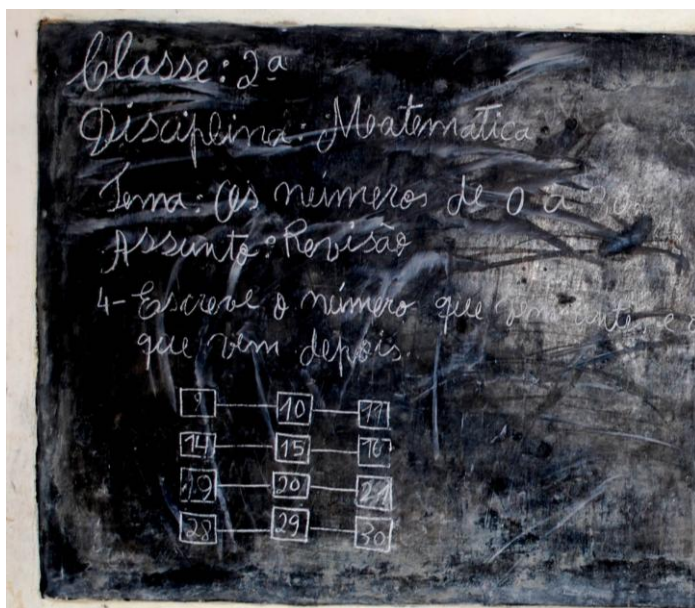 Classe: 2ª
Disciplina: Matematica
Tema: Os números de 0 à 30
Assunto: Revisão
4- Escreve o número que vem antes e
que vem depois.
9 10 11
14 15 16
19 20 21
28 29 30